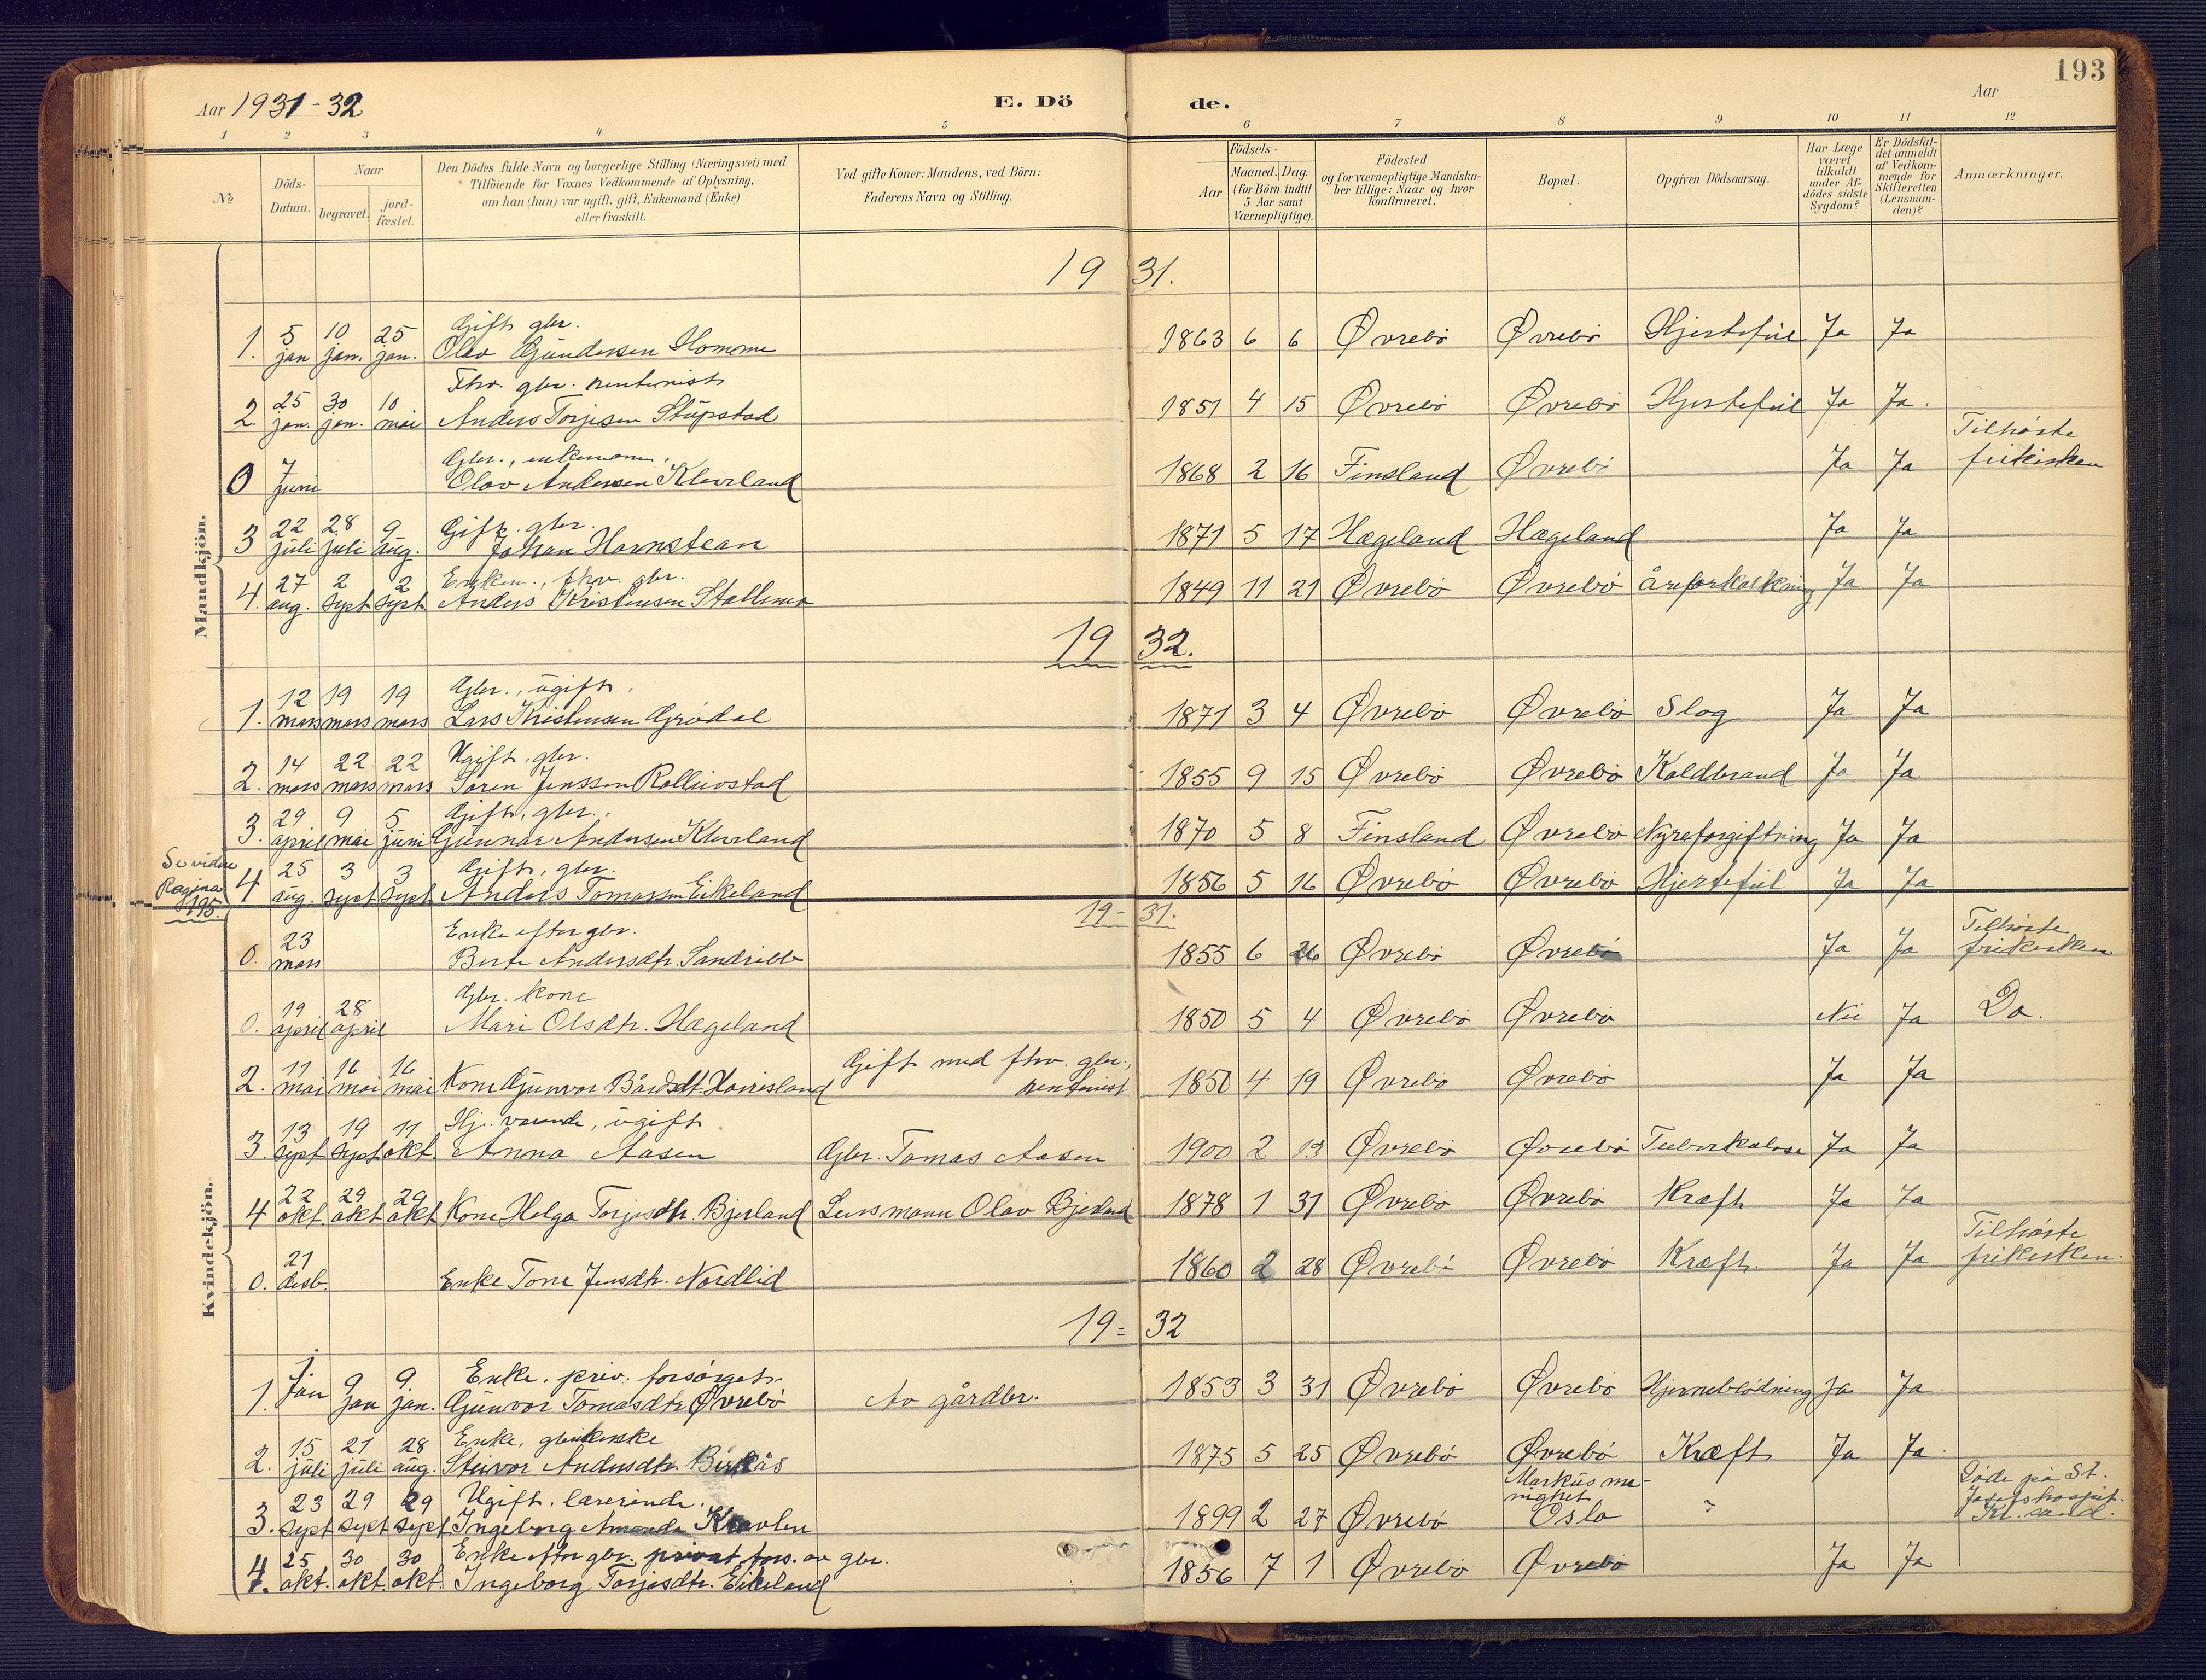 193
Aar 1931-32 E. Dö de. Aar
1 2 3 4 5 6 7 8 9 10 11 12
№
Döds-Datum.
Naar
begravet.
jord-fæstet.
Den Dödes fulde Navn og borgerlige Stilling (Næringsvei) med
Tilföiende for Voxnes Vedkommende af Oplysning,
om han (hun) var ugift, gift, Enkemand (Enke)
eller fraskilt.
Ved gifte Koner: Mandens, ved Börn:
Faderens Navn og Stilling.
Födsels-
Aar
Maaned. Dag
(for Börn indtil
5 Aar samt
Værnepligtige).
Födested
og for værnepligtige Mandska-
ber tillige: Naar og hvor
konfirmeret.
Bopæl.
Opgiven Dödsaarsag.
Har Læge
været
tilkaldt
under Af-
dödes sidste
Sygdom?
Er Dödsfal-
det anmeldt
af Vedkom-
mende for
Skifteretten
(Lensman-
den)?
Anmærkninger.
Mandkjön.
19 31.
5 10 25 Gift gbr.
1. jan jan. jan. Olav Gundersen Homme 1863 6 6 Øvrebø Øvrebø Hjertefeil Ja Ja
25 30 10 Fhv. gbr. rentenist
2. jan. jan. mai Anders Torjesen Stupstad 1851 4 15 Øvrebø Øvrebø Hjertefeil Ja Ja.
7 Gbr., enkemann. Tilhørte
0 juni Olav Andersen Klevland 1868 2 16 Finsland Øvrebø Ja Ja frikirken
22 28 9 Gift, gbr.
3 juli juli aug. Johan Harnstean 1871 5 17 Hægeland Hægeland Ja Ja
27 2 2 Enkem., fhv. gbr.
4. aug. sept sept Anders Kristensen Stallemo 1849 11 21 Øvrebø Øvrebø Åreforkalkning Ja Ja
19 32.
12 19 19 Gbr., ugift.
1. mars mars mars Lars Kristensen Grødal 1871 3 4 Øvrebø Øvrebø Slag Ja Ja
14 22 22 Ugift, gbr.
2. mars mars mars Søren Jenssen Rolleivstad 1855 9 15 Øvrebø Øvrebø Koldbrand Ja Ja
29 9 5 Gift, gbr.
3. april mai juni Gunnar Andersen Klevland 1870 5 8 Finsland Øvrebø Nyreforgiftning Ja Ja
Se videre
Pagina
195.
25 3 3 Gift, gbr.
4 aug. sept sept Anders Tomassen Eikeland 1856 5 16 Øvrebø Øvrebø Hjertefeil Ja Ja
Kvindekjön.
19- 31.
23 Enke efter gbr. Tilhørte
0. mars Berte Andersdtr. Sandribb 1855 6 26 Øvrebø Øvrebø Ja Ja frikirken
19 28 Gbr. kone
0. april april Mari Olsdtr. Hægeland 1850 5 4 Øvrebø Øvrebø Nei Ja Do.
11 16 16 Gift med fhv. gbr.,
2. mai mai mai Kone Gunvor Bårdsdt. Haeresland rentenist 1850 4 19 Øvrebø Øvrebø Ja Ja
13 19 11 Hj. værende, ugift
3. sept sept okt. Anna Aasen Gbr. Tomas Aasen 1900 2 13 Øvrebø Øvrebø Tuberkulose Ja Ja
22 29 29
4 okt okt okt Kone Helga Torjesdtr. Bjerland Lensmann Olav Bjerland 1878 1 31 Øvrebø Øvrebø Kræft Ja Ja
21 Tilhørte
0. desb. Enke Tone Jensdtr. Nordlid 1860 2 28 Øvrebø Øvrebø Kræft Ja Ja frikirken.
19= 32
1 9 9 Enke. priv. forsørget.
1. jan jan jan. Gunvor Tomasdtr Øvrebø Av gårdbr. 1853 3 31 Øvrebø Øvrebø Hjerneblødning Ja Ja
15 21 28 Enke, gbrukerske
2. juli juli aug. Steivor Andersdtr. Birkås 1875 5 25 Øvrebø Øvrebø Kræft Ja Ja.
23 29 29 Ugift. lærerinde. Markus me-
nighet Døde på St.
Josefshospit.
3. sept sept sept Ingeborg Amanda 1899 2 27 Øvrebø Oslo Kr. sand.
25 30 30 Enke efter gbr. privat fors. av gbr.
4. okt. okt okt Ingeborg Torjesdtr. Eikeland 1856 7 1 Øvrebø Øvrebø Ja Ja